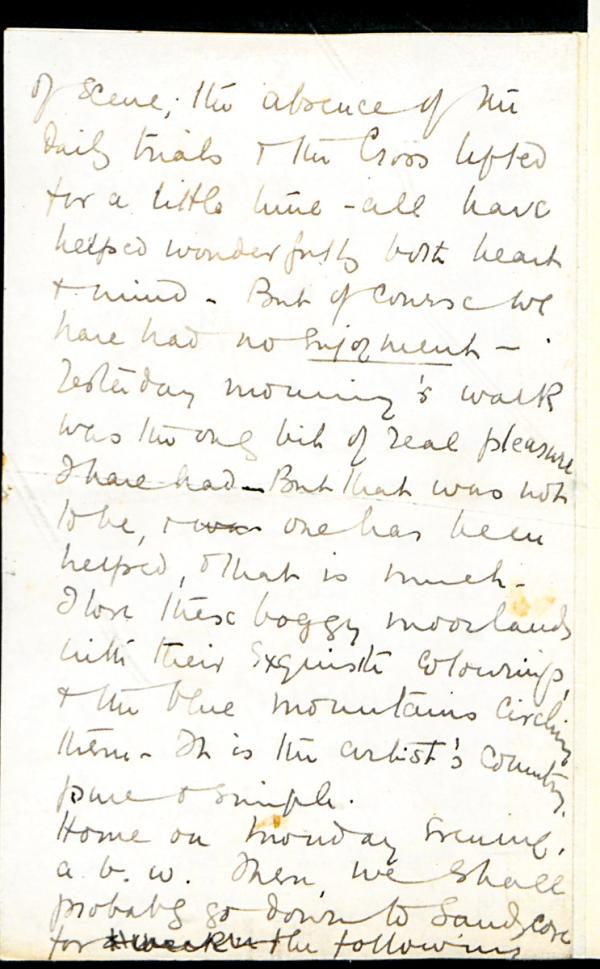 of scene; the absence of the
daily trials & the Cross lifted
for a little time - all have
helped wonderfully both heart
& mind - But of course we
have had no Enjoyment -
Yesterday morning's walk
was the only bit of real pleasure
I have had - But that was not
to be, & was one has been
helped, & that is much -
I love these boggy moorlands
with their Exquisite Colourings,
& the blue mountains circling
them - It is the artist's Country,
pure & simple.
Home on Monday Evening,
a.b.w. Then, we shall
probably go down to Sandgate
for the following